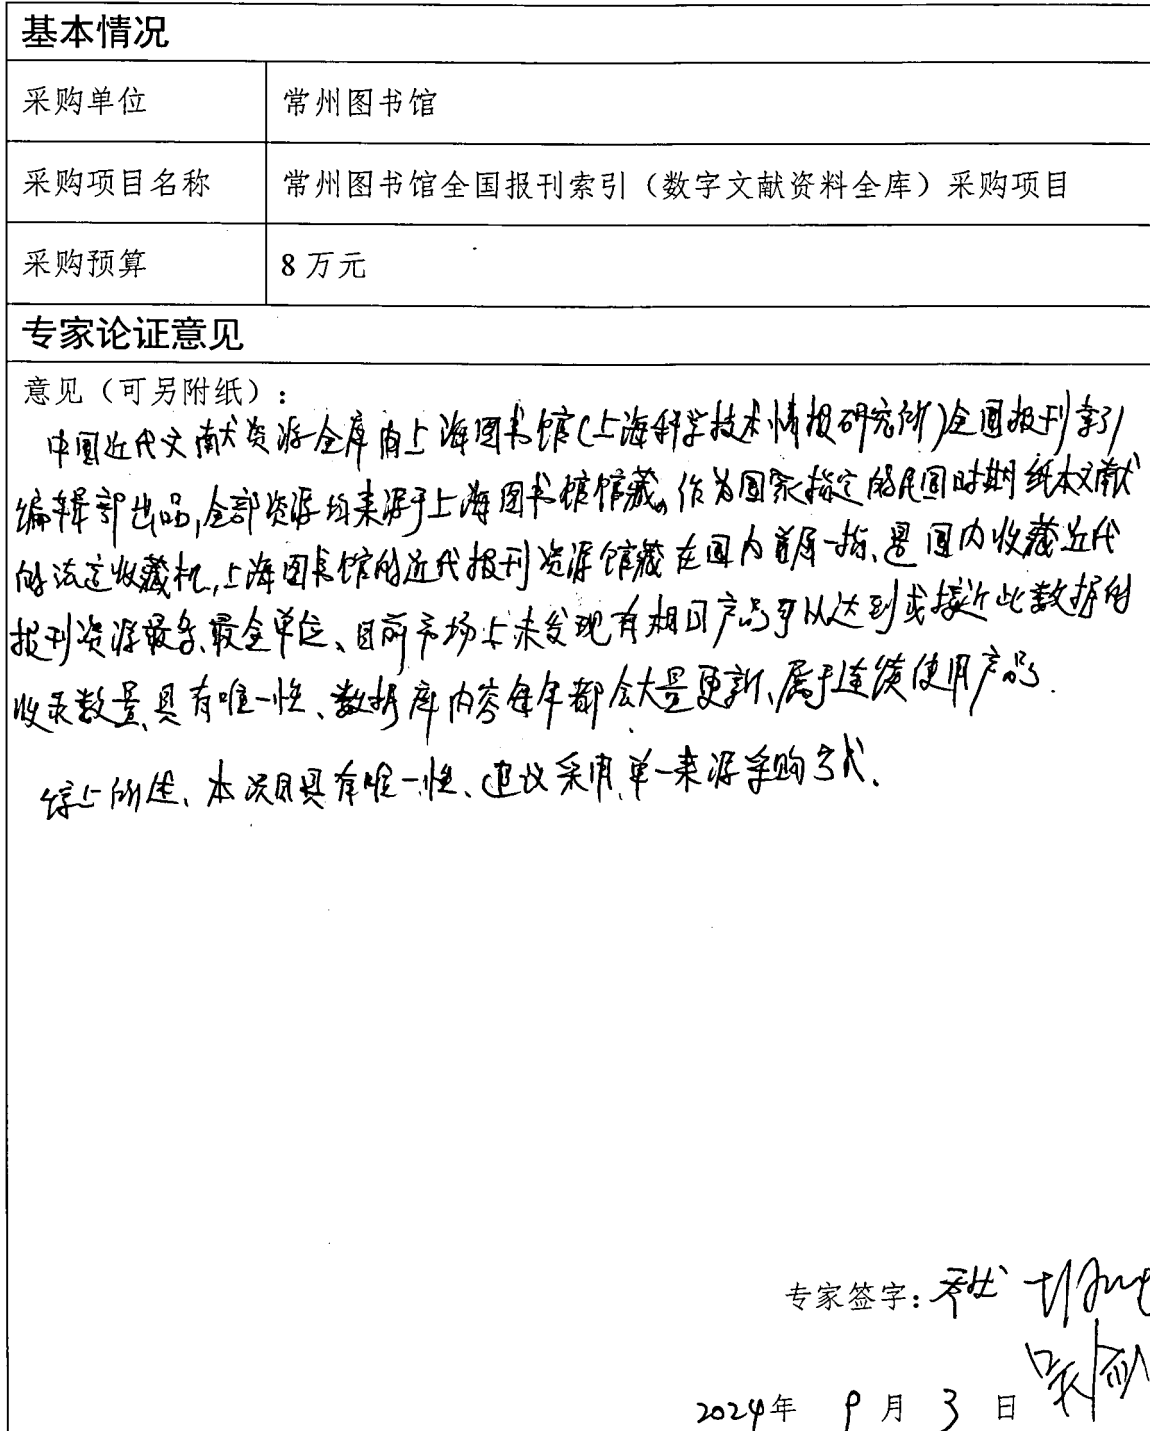 基本情况
采购单位 常州图书馆
采购项目名称 常州图书馆全国报刊索引（数字文献资料全库）采购项目
采购预算 8 万元
专家论证意见
意见（可另附纸）：
中国近代文献资源全库由上海图书馆(上海科学技术情报研究所)全国报刊索引
编辑部出品,全部资源均来源于上海图书馆馆藏。作为国家指定的民国时期纸本文献
的法定收藏机,上海图书馆的近代报刊资源馆藏在国内首屈一指、是国内收藏近代
报刊资源最多、最全单位、目前市场上未发现有相同产品可以达到或接近此数据的
收录数量、具有唯一性、数据库内容每年都会大量更新、属于连续使用产品.
综上所述、本项目具有唯一性、建议采用单一来源采购方式.
专家签字:
2024年 9 月 3 日